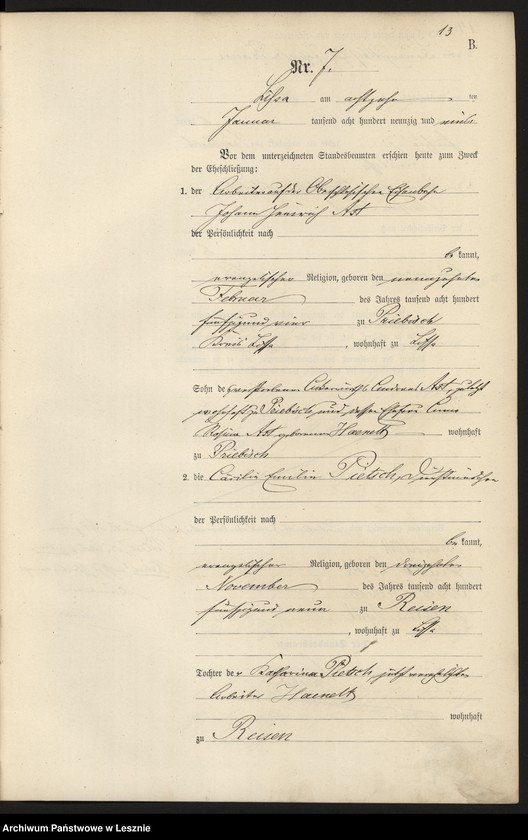 13
B.
Nr. 7.
Lissa am achtzehn ten
Januar tausend acht hundert neunzig und
Vor dem unterzeichneten Standesbeamten erschien heute zum Zweck
der Eheschließung:
1. der Arbeiter auf der Oberschlesischen Eisenbahn
Johann Heinrich Ast
der Persönlichkeit nach
be kannt,
evangelischer Religion, geboren den neunzehnten
Februar des Jahres tausend acht hundert
fünfzig und vier zu Priebisch
Kreis Lissa, wohnhaft zu Lissa
Sohn des verstorbenen Ast, zuletzt
wohnhaft zu Priebisch, und dessen Ehefrau Anna
Rosina Ast geborenen Haenelt wohnhaft
zu Priebisch
2. die Cäcilie Emilie Pietsch, Dienstmädchen
der Persönlichkeit nach
be kannt,
evangelischer Religion, geboren den
November des Jahres tausend acht hundert
fünfzig und neun zu Reisen
, wohnhaft zu Lissa
Tochter der Katharina Pietsch, jetzt verehelichten
Arbeiter Haenelt
wohnhaft
zu Reisen
Archiwum Państwowe w Lesznie